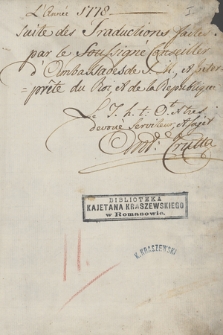 L'Année 1778. I
Suite des Traductions faites
par le Soussigné Conseiller
d'Ambassades de S. M., et Inter-
prête du Roi, et de la Republique
Le T. h. t. O. et tres
devoué Serviteur, et sujet
Ant. Crutta
BIBLIOTEKA
KAJETANA KRASZEWSKIEGO
w Romanowie.
K. KRASZEWSKI